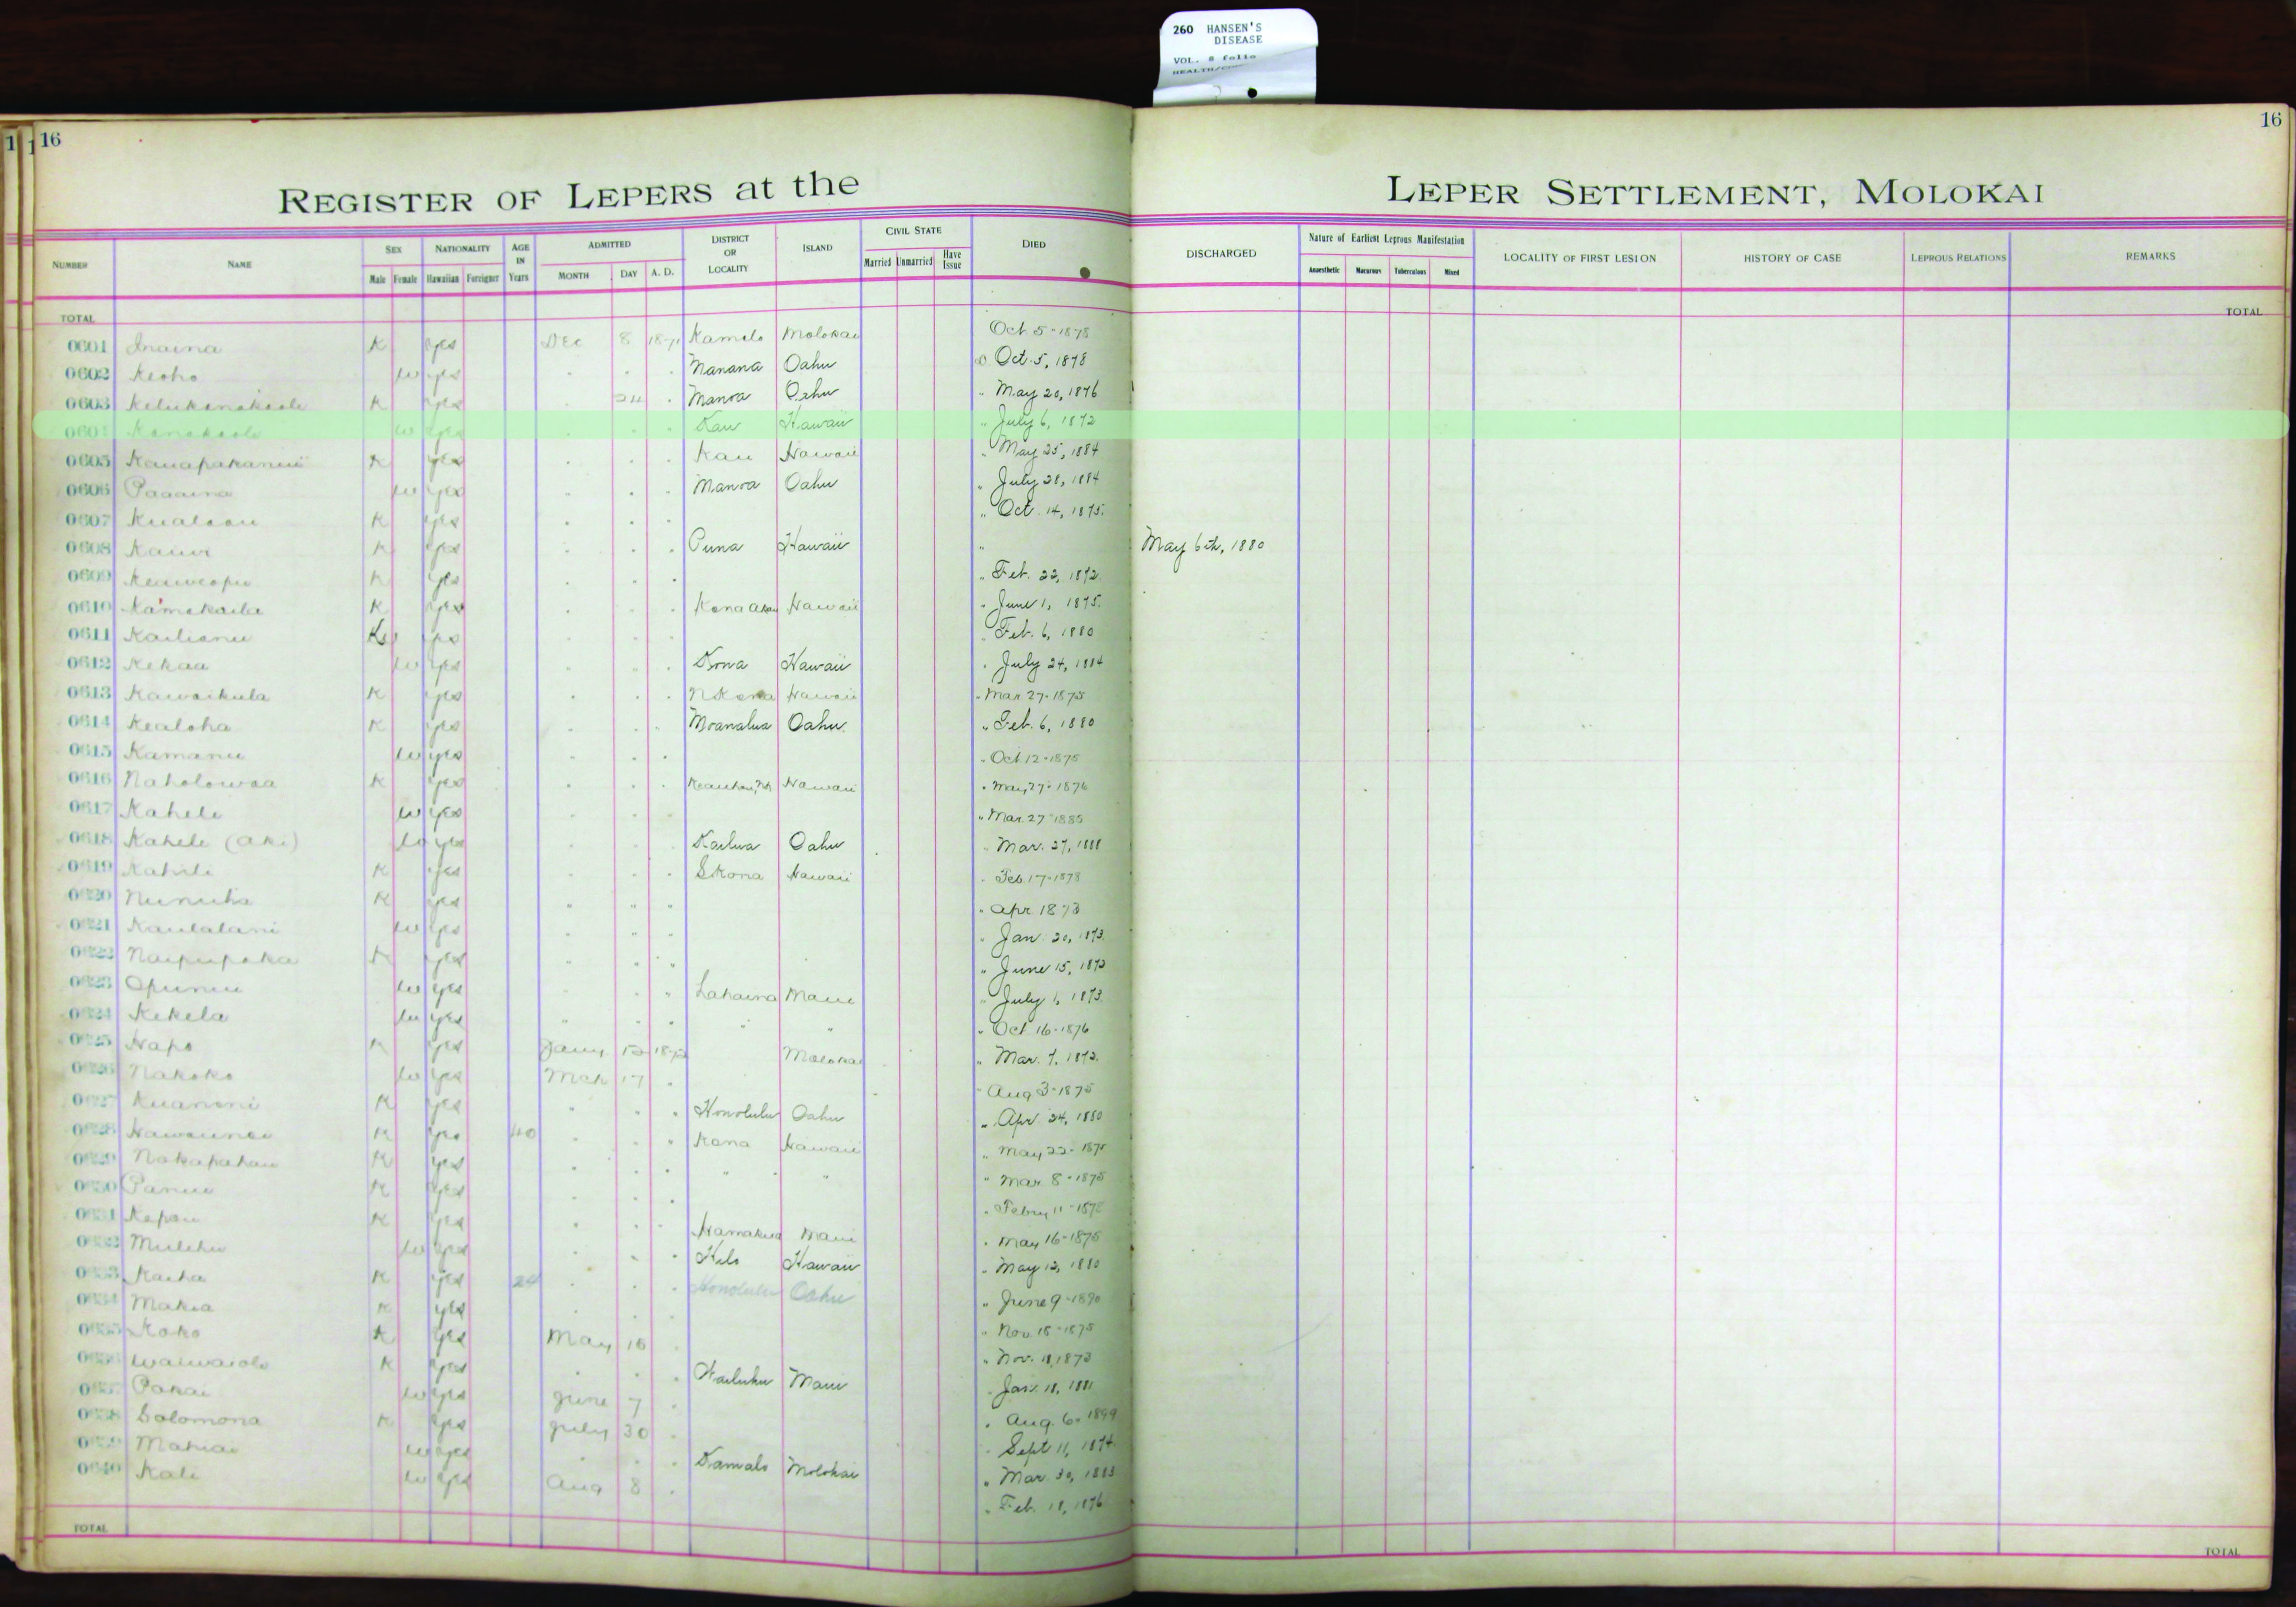 260 HANSEN'S
DISEASE
VOL. 8 folio
16
16
REGISTER OF LEPERS at the
LEPER SETTLEMENT, MOLOKAI
NUMBER NAME SEX Male Female NATIONALITY Hawaiian Foreigner AGE IN Years ADMITTED MONTH DAY A. D. DISTRICT OR LOCALITY ISLAND CIVIL STATE Married Unmarried Have Issue DIED DISCHARGED Nature of Earliest Leprous Manifestation Anaesthetic Macurous Tuberculous Mixed LOCALITY OF FIRST LESION HISTORY OF CASE LEPROUS RELATIONS REMARKS
TOTAL TOTAL
0601 Inaina K yes Dec 8 Kamalo Molokai Oct 5-1878
0602 Keoho w yes Manana Oahu Oct. 5, 1878
0603 K yes 24 Manoa Oahu " May 20, 1876
0604 Kanakaole w yes Kau Hawaii " July 6, 1872
0605 K yes Kau Hawaii " May 25, 1884
0606 Paaaina w yes Manoa Oahu " July 28, 1884
0607 K yes " Oct. 14, 1875.
0608 Kauwi K yes Puna Hawaii " May 6th, 1880
0609 Keaweopu K yes " Feb. 22, 1872.
0610 Kamakaila K yes Kona Akau Hawaii " June 1, 1875.
0611 Kailianu yes Feb. 6, 1880
0612 Kekaa w yes Kona Hawaii " July 24, 1884
0613 Kawaikula K yes N Kona Hawaii " Mar 27-1875
0614 Kealoha K yes Moanalua Oahu. " Feb. 6, 1880
0615 Kamanu w yes " Oct 12-1875
0616 Naholowaa K yes Hawaii " May 27-1876
0617 Kahele w yes " Mar. 27-1885
0618 Kahele (aki) w yes Kailua Oahu " Mar. 27, 1888
0619 Kahili K yes S Kona Hawaii " Feb. 17-1878
0620 Nunuha K yes " " " " Apr. 1873
0621 Kaulalani w yes " Jan. 20, 1873.
0622 Naipupaka K yes " June 15, 1873
0623 Opunui w yes Lahaina Maui " July 1, 1873.
0624 Kekela w yes " " " Oct 16-1876
0625 Hapo K yes Jany 12 Molokai " Mar. 7, 1872.
0626 Nakoko w yes Mch 17 " Aug 3-1875
0627 Kuanoni K yes Honolulu Oahu " Apr. 24, 1880
0628 K yes 40 Kona Hawaii " May 22-1875
0629 Nakapahau K yes " " " Mar. 8-1875
0630 Panui K yes " Febry 11-1878
0631 Kepau K yes Hamakua Maui " May 16-1875
0632 Mulehu w yes Hilo Hawaii " May 12, 1880
0633 Kaiha K yes 24 Honolulu Oahu " June 9-1890
0634 Makia K yes " Nov. 15-1875
0635 Koko K yes May 15 " Nov. 11, 1873
0636 Waiwaiole K yes Wailuku Maui Jan. 18, 1881
0637 Pakai w yes June 7 " Aug. 6. 1899
0638 Solomona K yes July 30 Sept 11, 1874
0639 Mahiai w yes Kamalo Molokai " Mar. 30, 1883
0640 Kali w yes Aug 8 " Feb. 18, 1876
TOTAL TOTAL